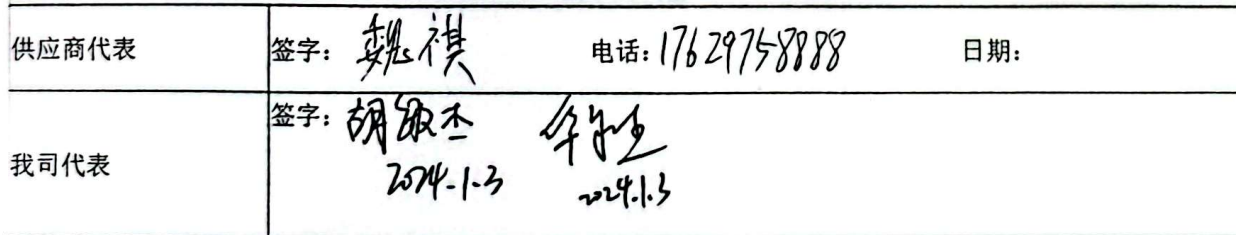 供应商代表 签字：魏祺 电话：17629758888 日期：
我司代表 签字：胡敏杰
2024.1.3 2024.1.3